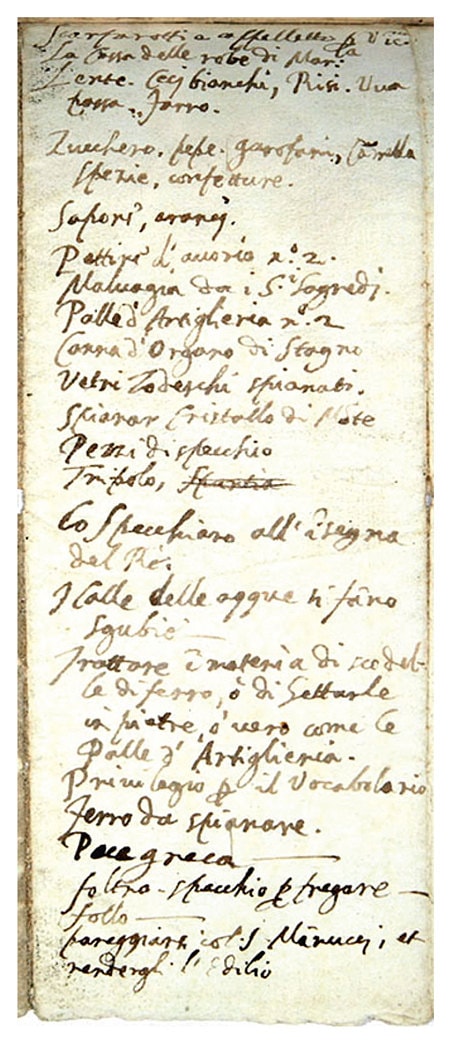 Scarfarotti a cappelletto p Vic.o
La Cassa delle robe di Mar.ta
Lente. Ceci bianchi, Risi. Uva
passa. Farro.
Zucchero. pepe. garofani, Cãnella
spezie, confetture.
Saponi, aranci.
Pettini d'avorio n.o 2.
Malvagia da i S.i Sagredi.
Palle d'Artiglieria n.o 2
Canna d'Organo di Stagno
Vetri Todeschi spianati.
Spianar Cristallo di Mõte
Pezzi di specchio
Tripolo,
Lo Specchiaro all' ĩsegna
del Rè.
I Calle delle acque si fãno
sgubie
Trattare ĩ materia di scodel-
le di ferro, ò di Gettarle
in pietre, ò vero come le
Palle d'Artiglieria.
Privilegio p il Vocabolario
Ferro da spianare.
Pece greca
feltro. specchio p fregare
follo
pareggiarsi col S. Mãnucci, et
rendergli l'Edilio